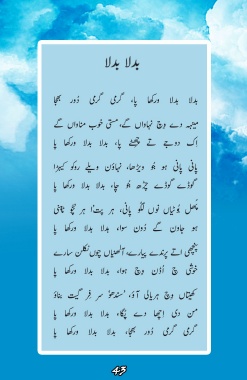 بدلا بدلا
بدلا بدلا ورکھا پا، گرمی گرمی دُور بھجا
مینہہ دے وِچ نہاواں گے، مستی خوب مناواں گے
اِک دوجے تے چھٹے پا، بدلا بدلا ورکھا پا
پانی پانی ہو جُو ویڑھا، نہاؤن ویلے روکو کیہڑا
گوڈے گوڈے چڑھ جُو چا، بدلا بدلا ورکھا پا
پھل بُوٹیاں نوں لگُو پانی، ہر پتا ہر ٹہنی
ہو جاون گے دُون سوا، بدلا بدلا ورکھا پا
پنچھی اتے پرندے پیارے، آلھنیاں چوں نکلن سارے
خوشی چ اُڈن وِچ ہوا، بدلا بدلا ورکھا پا
کھیتاں وِچ ہریالی آؤ، سندھو سر فر گیت بناؤ
من دی اِچھا دے پگا، بدلا بدلا ورکھا پا
گرمی گرمی دُور بھجا، بدلا بدلا ورکھا پا
43